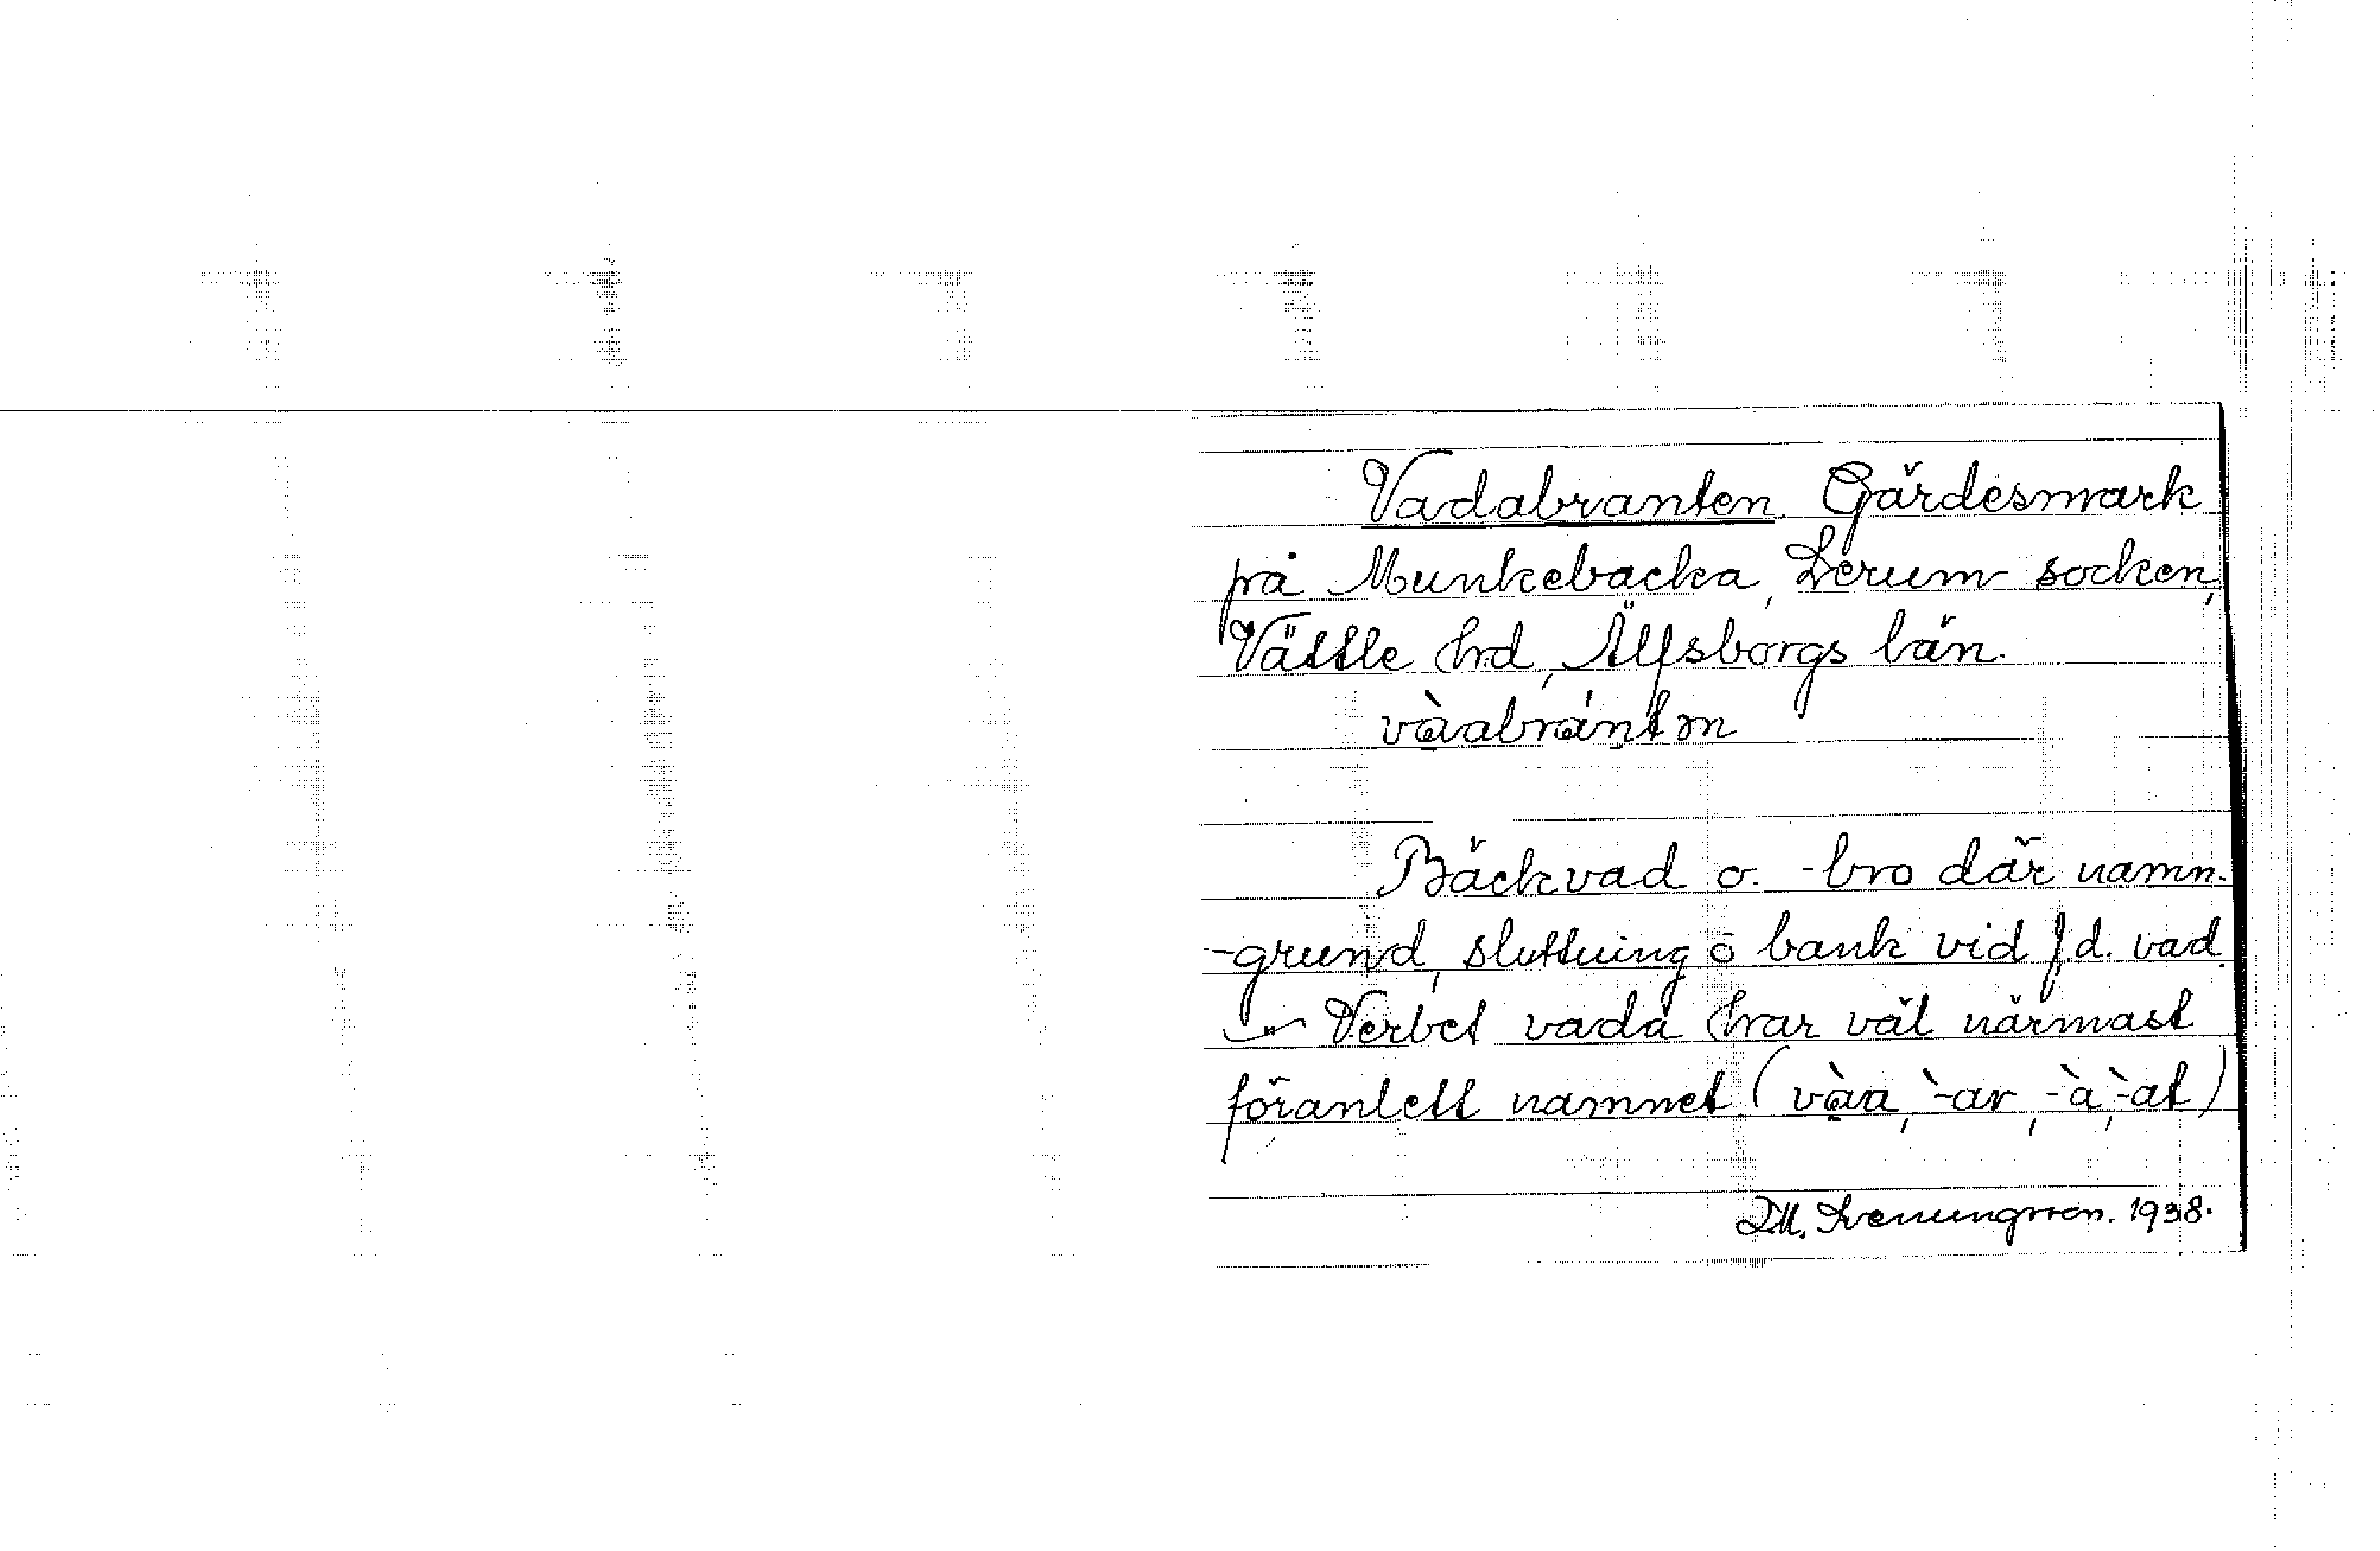 Vadabranten. Gärdesmark
på Munkebacka, Lerum socken,
Vättle hrd, Älfsborgs län.
vàabrántən
Bäckvad o. -bro där namn-
-grund, sluttning o bank vid f.d. vad.
Verbet vada har väl närmast
föranlett namnet (vàa, `-ar, -`a, `-at)
D.M. Svenungsson. 1938.